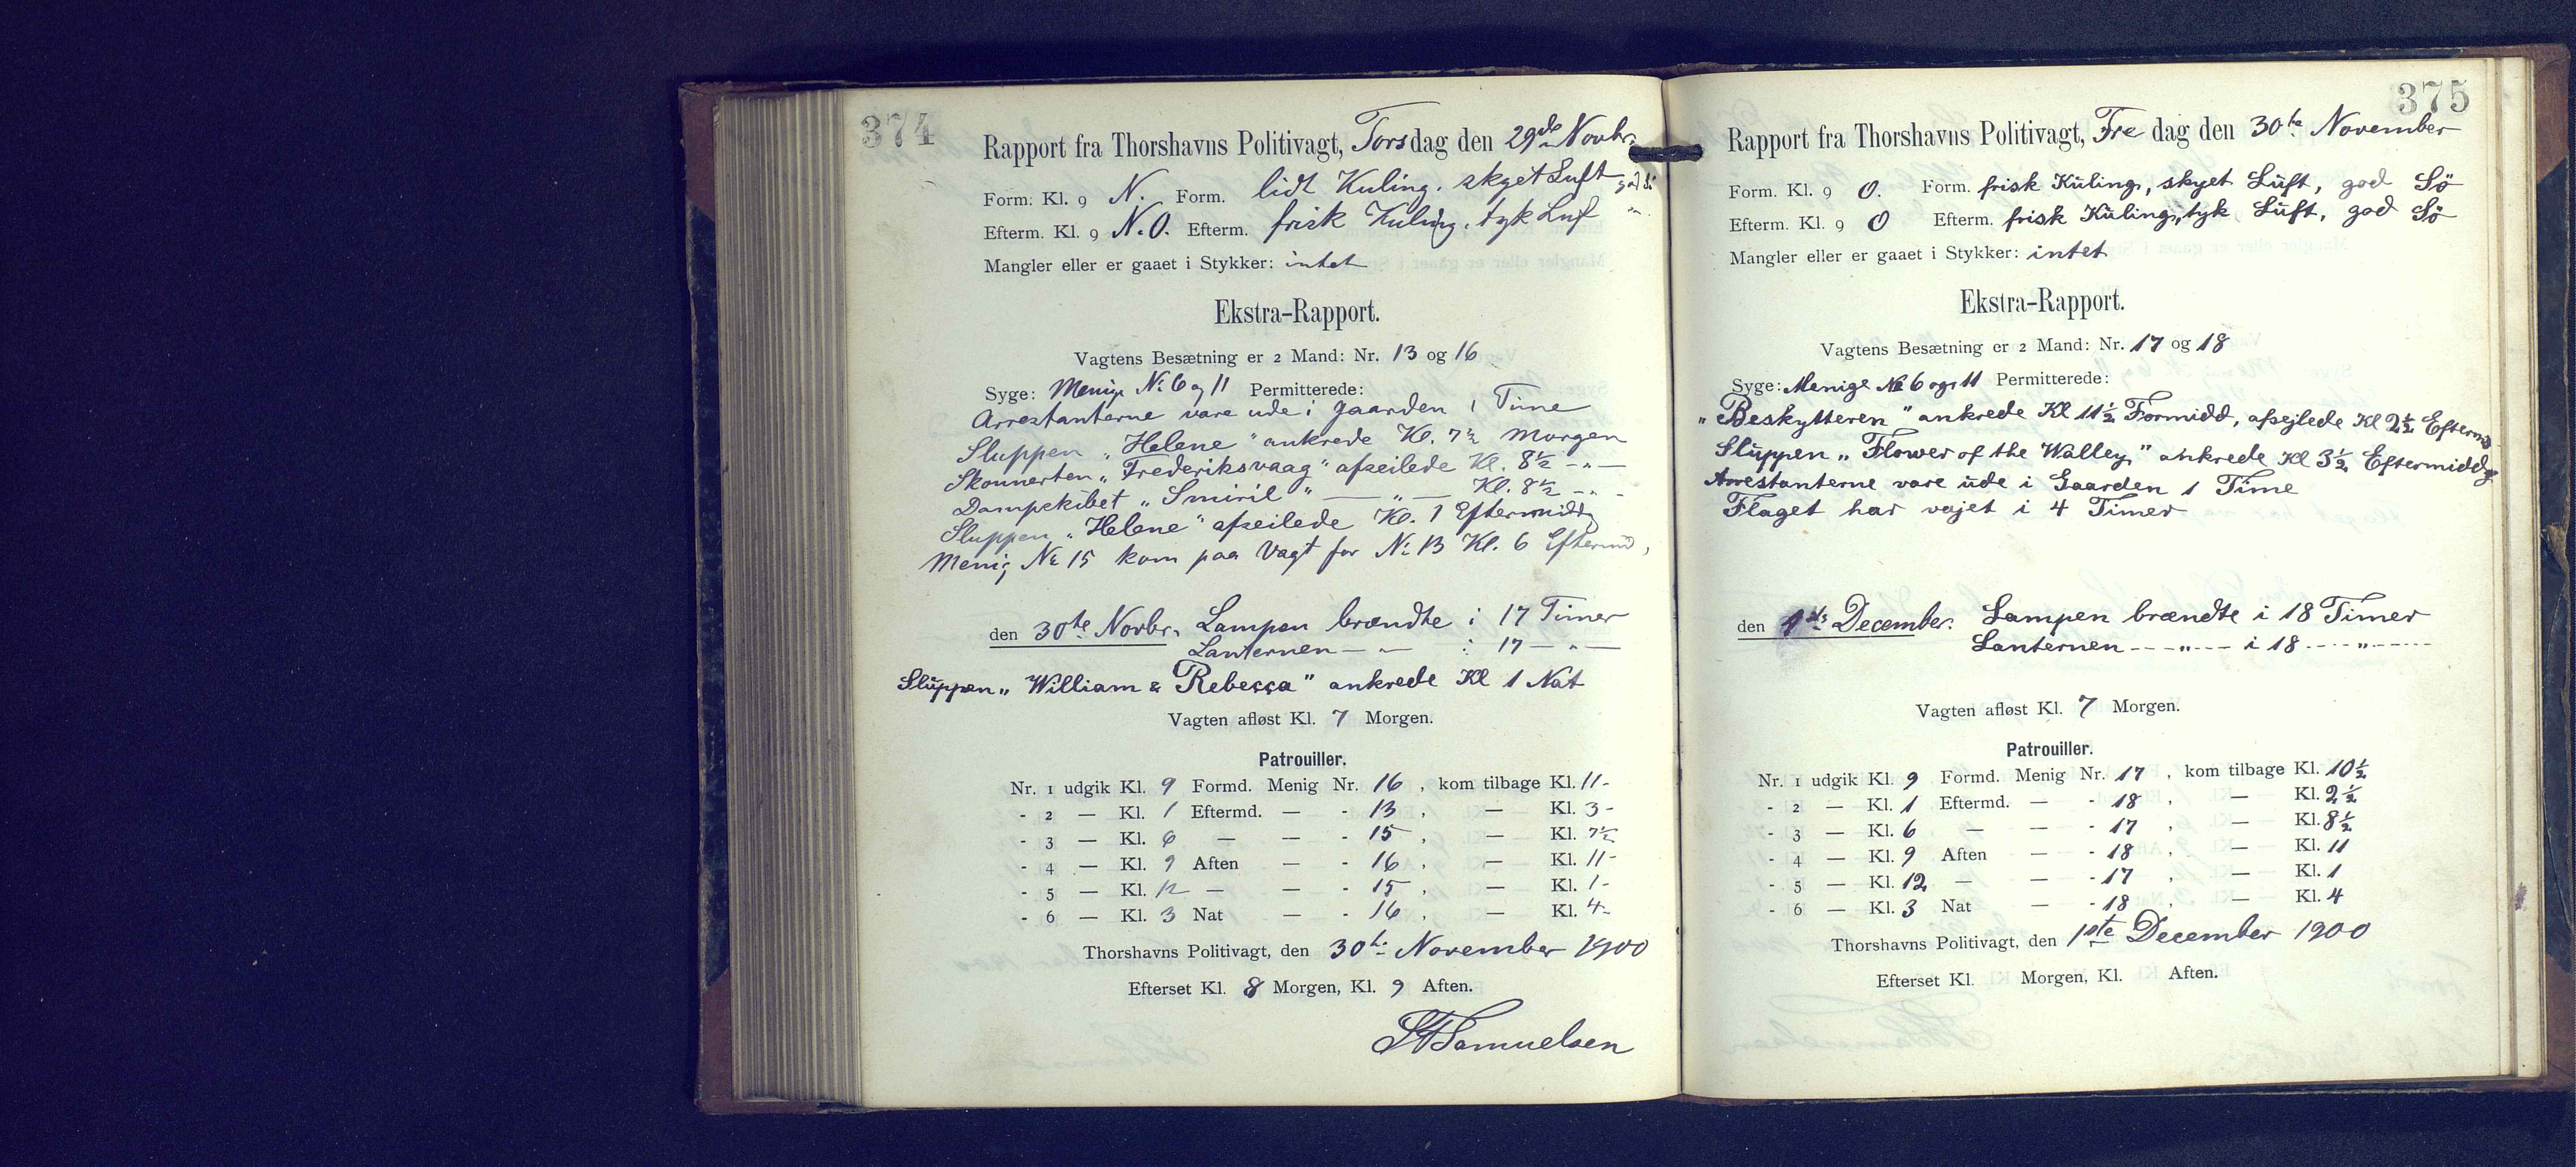 374
Rapport fra Thorshavns Politivagt, Torsdag den 29de Novbr.
Form. Kl. 9 N. Form. lidt Kuling. skyet Luft god Sö
Efterm. Kl. 9 N.O. Efterm. frisk Kuling. tyk Luf " "
Mangler eller er gaaet i Stykker: intet
Ekstra-Rapport.
Vagtens Besætning er 2 Mand: Nr. 13 og 16
Syge: Menige № 6 og 11 Permitterede:
Arrestanterne vare ude i Gaarden 1 Time
Sluppen „Helene" ankrede Kl. 7½ Morgen
Skonnerten „Frederiksvaag" afseilede Kl. 8½ — " —
Dampskibet „Smiril" — " — Kl. 8½ — " —
Sluppen „Helene" afseilede Kl. 1 Eftermiddg
Menig № 15 kom paa Vagt for № 13 Kl. 6 Eftermid,
den 30te Novbr. Lampen brændte i 17 Timer
Lanternen — " — i 17 — " —
Sluppen „William & Rebecca" ankrede Kl 1 Nat
Vagten afløst Kl. 7 Morgen.
Patrouiller.
Nr. 1 udgik Kl. 9 Formd. Menig Nr. 16, kom tilbage Kl. 11-
- 2 — Kl. 1 Eftermd. — - 13, — Kl. 3-
- 3 — Kl. 6 — — - 15, — Kl. 7½
- 4 — Kl. 9 Aften — - 16, — Kl. 11-
- 5 — Kl. 12 — — - 15, — Kl. 1-
- 6 — Kl. 3 Nat — - 16, — Kl. 4-
Thorshavns Politivagt, den 30te November 1900
Efterset Kl. 8 Morgen, Kl. 9 Aften.
Samuelsen
375
Rapport fra Thorshavns Politivagt, Fredag den 30te November
Form. Kl. 9 O. Form. frisk Kuling, skyet Luft, god Sö
Efterm. Kl. 9 O Efterm. frisk Kuling, tyk Luft, god Sö
Mangler eller er gaaet i Stykker: intet
Ekstra-Rapport.
Vagtens Besætning er 2 Mand: Nr. 17 og 18
Syge: Menige № 6 og 11 Permitterede:
„Beskytteren" ankrede Kl 11½ Formidd, afsejlede Kl 2½ Eftermd
Sluppen „Flower of the Walley" ankrede Kl 3½ Eftermiddg
Arrestanterne vare ude i Gaarden 1 Time
Flaget har vajet i 4 Timer
den 1ste December. Lampen brændte i 18 Timer
Lanternen — " — i 18 — " —
Vagten afløst Kl. 7 Morgen.
Patrouiller.
Nr. 1 udgik Kl. 9 Formd. Menig Nr. 17, kom tilbage Kl. 10½
- 2 — Kl. 1 Eftermd. — - 18, — Kl. 2½
- 3 — Kl. 6 — — - 17, — Kl. 8½
- 4 — Kl. 9 Aften — - 18, — Kl. 11
- 5 — Kl. 12 — — - 17, — Kl. 1
- 6 — Kl. 3 Nat — - 18, — Kl. 4
Thorshavns Politivagt, den 1ste December 1900
Efterset Kl. Morgen, Kl. Aften.